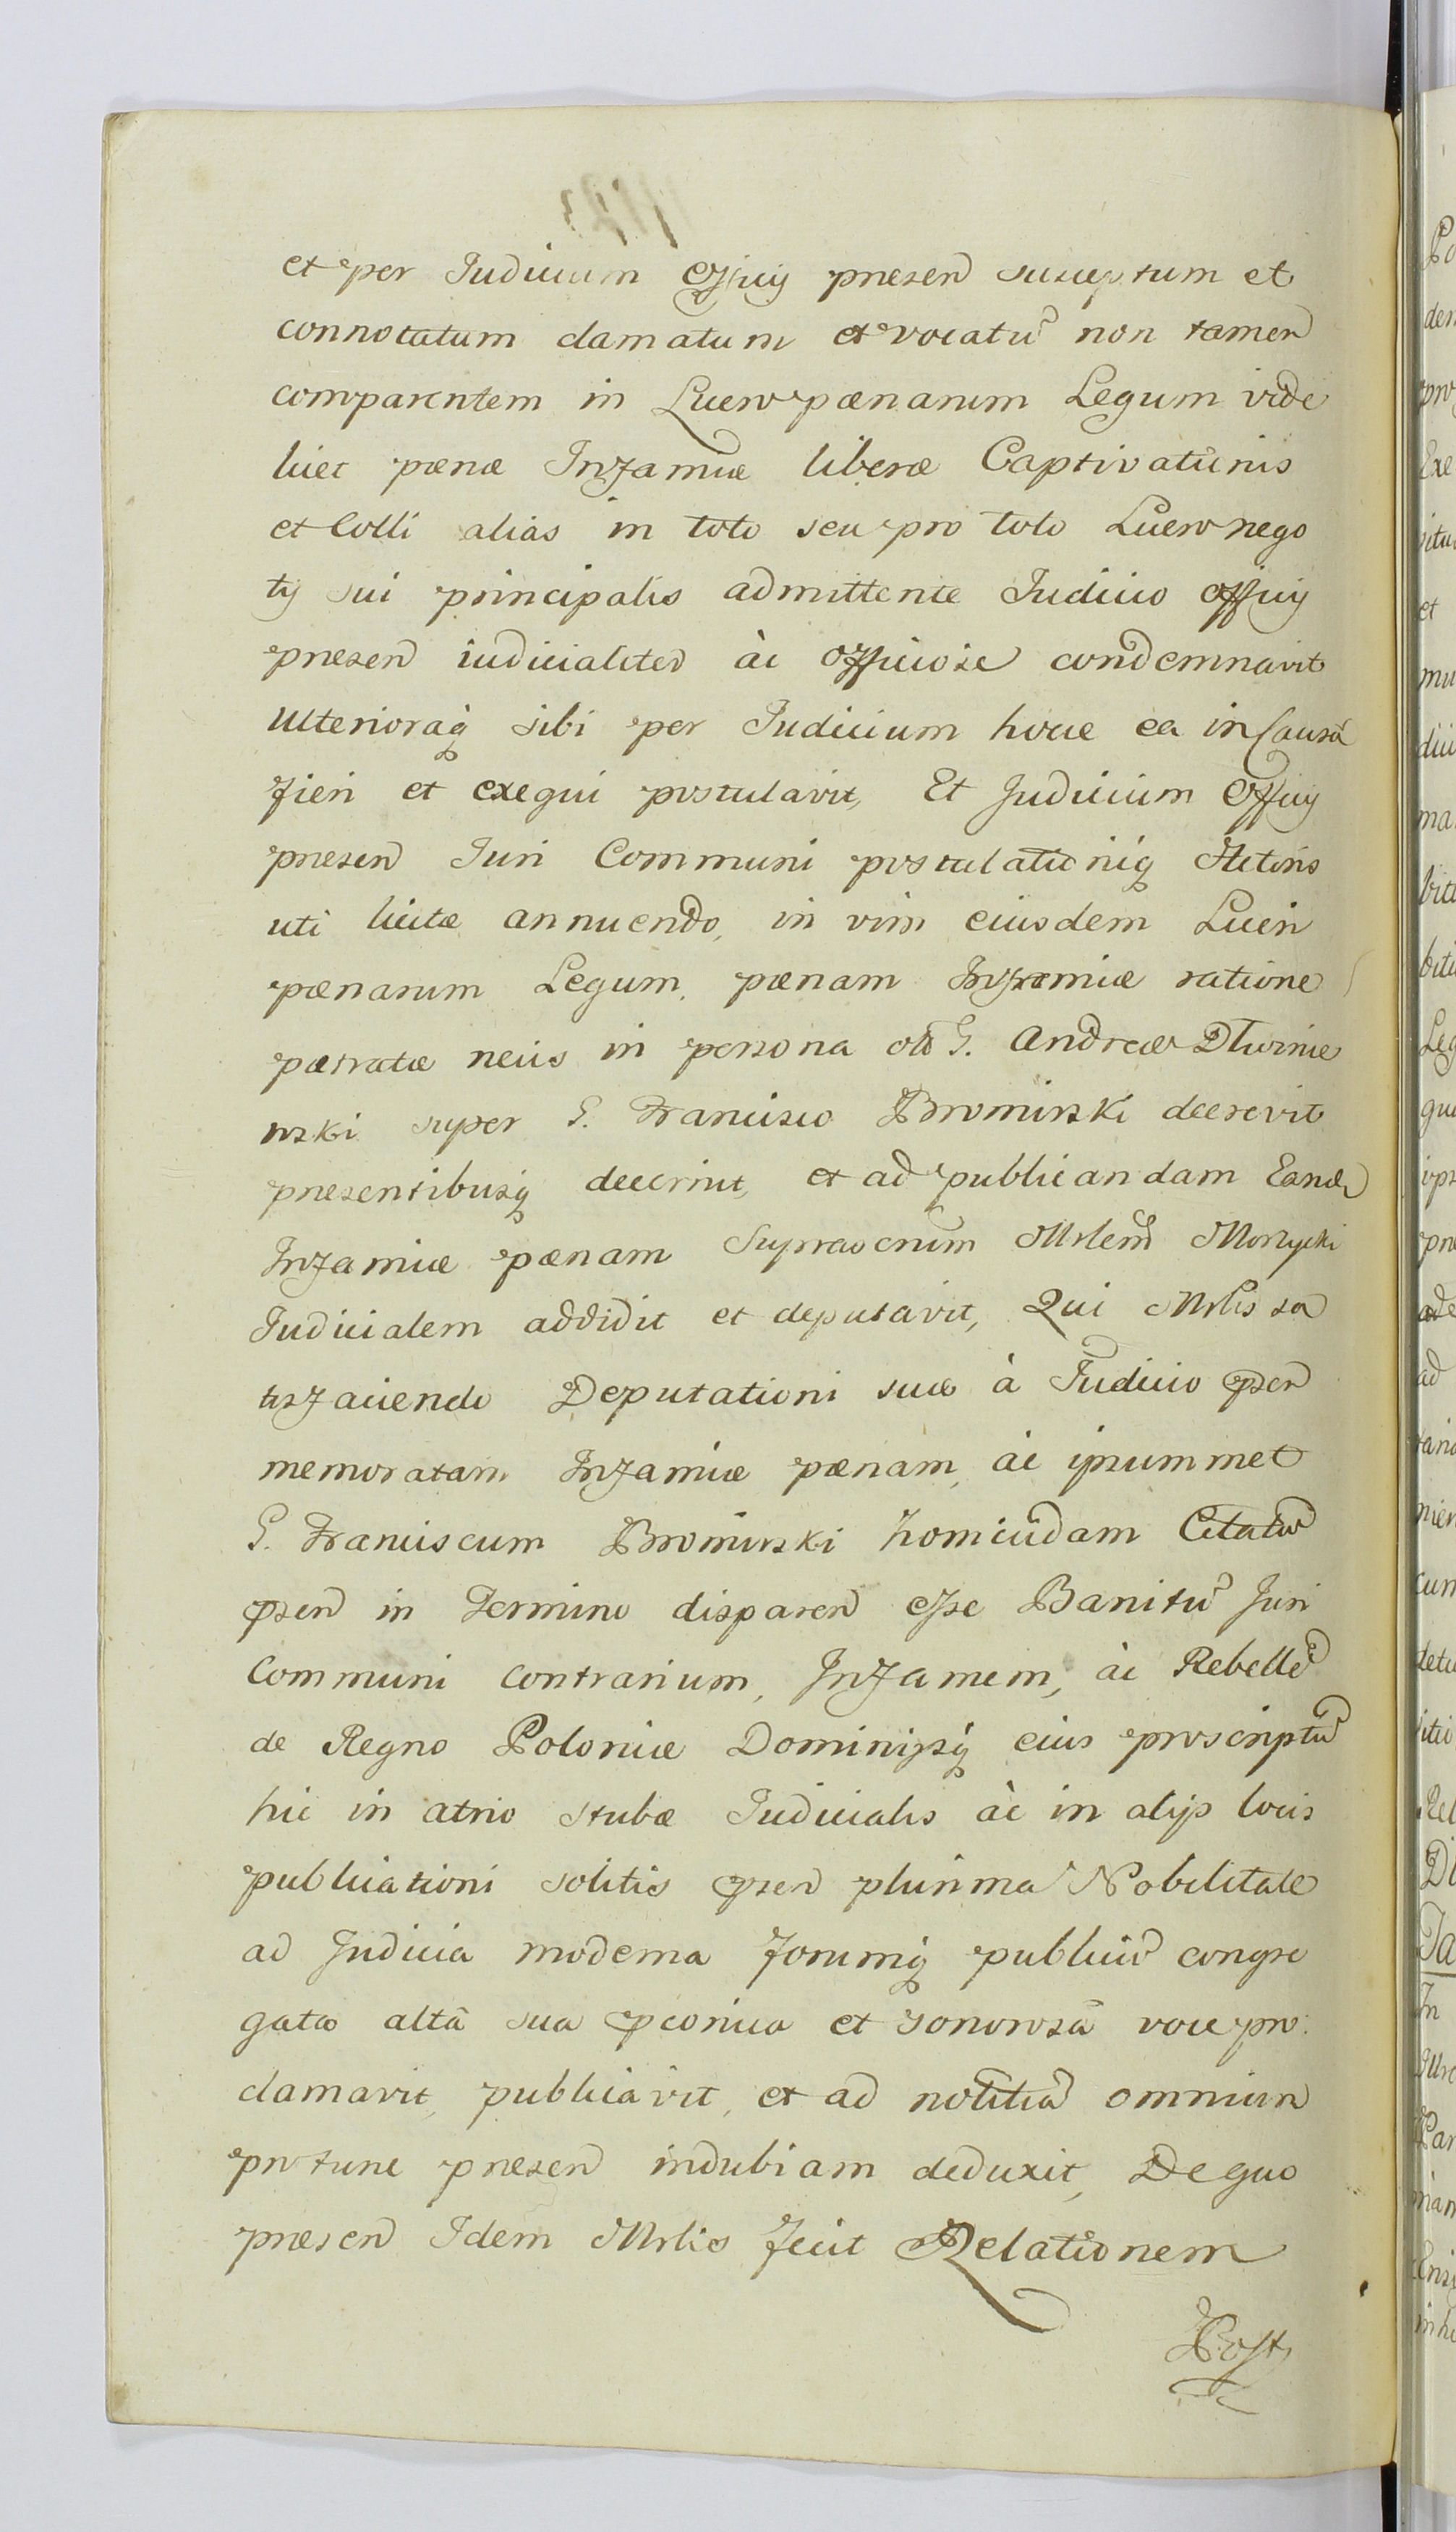 et per Judicium Officÿ præsen susceptum et
connotatum clamatum et vocatũ non tamen
comparentem in Lucro pænarum Legum vide
licet pænæ Infamiæ liberæ Captivationis
et Colli alias in toto seu pro toto Lucro nego
tÿ sui principalis admittente Judicio officÿ
præsen iudicialiter àc officiose condemnavit
Ulterioraq sibi per Judicium hocce ea in Causa
fieri et exequi postulavit, Et Judicium Officÿ
præsen Juri Communi postulationiq Actoris
uti licitæ annuendo, in vim eiusdem Lucri
pænarum Legum, pænam Infamiæ ratione
patratæ necis in persona olim G. Andreæ Dłuznie
wski super G. Francisco Bromirski decrevit
præsentibusq decernit, et ad publicandam Eandem
Infamiæ pænam Ministerialem
Judicialem addidit et deputavit, Qui Mrlis sa
tisfaciendo Deputationi suæ à Judicio præsen
memoratam Infamiæ pænam, àc ipsummet
G. Franciscum Bromirski homicidam Citatũ
præsen in Termino disparen esse Banitũ Juri
Communi contrarium, Infamem, àc Rebellẽ
de Regno Poloniæ Dominÿsq eius proscriptũ
hic in atrio stubæ Judicialis àc in alÿs locis
publicationi solitis præsen plurima Nobilitate
ad Judicia moderna forumq publicũ congre
gata altâ sua præconica et sonorosâ voce pro:
clamavit, publicavit, et ad notitiã omnium
protunc præsen indubiam deduxit, De quo
præsen Idem Mrlis fecit Relationem
Post